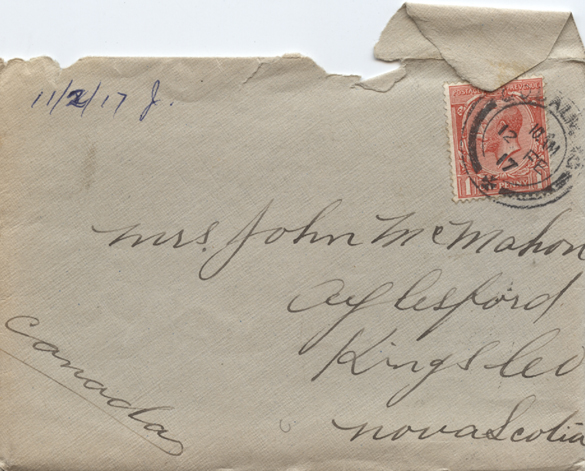 11/2/17 J.
POSTAGE REVENUE
10.AM
12 FE
17
Mrs. John McMahon
Aylesford
Kings Co
Nova Scotia
Canada